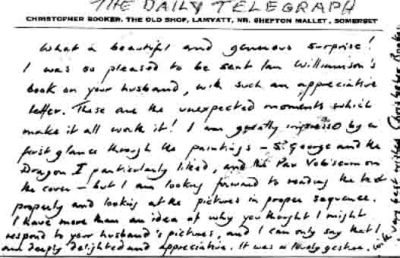 THE DAILY TELEGRAPH
CHRISTOPHER BOOKER, THE OLD SHOP, LAMYATT, NR. SHEPTON MALLET, SOMERSET
What a beautiful and generous surprise!
I was so pleased to be sent Ian Williamson's
book on your husband, with such an appreciative
letter. These are the unexpected moments which
make it all worth it! I am greatly impressed by a
first glance through the paintings – St. George and the
Dragon I particularly liked, and the Pax Vobiscum on
the cover – but I am looking forward to reading the text
properly and looking at the pictures in proper sequence.
I have more than an idea of why you thought I might
respond to your husband's pictures, and I can only say that I
am deeply delighted and appreciative. It was a lovely gesture.
with very best wishes Christopher Booker